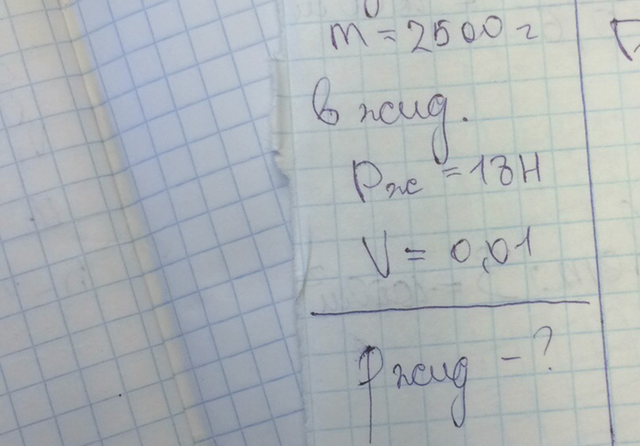 m = 2500 г
в жид.
Pж = 18Н
V = 0,01
ρжид - ?